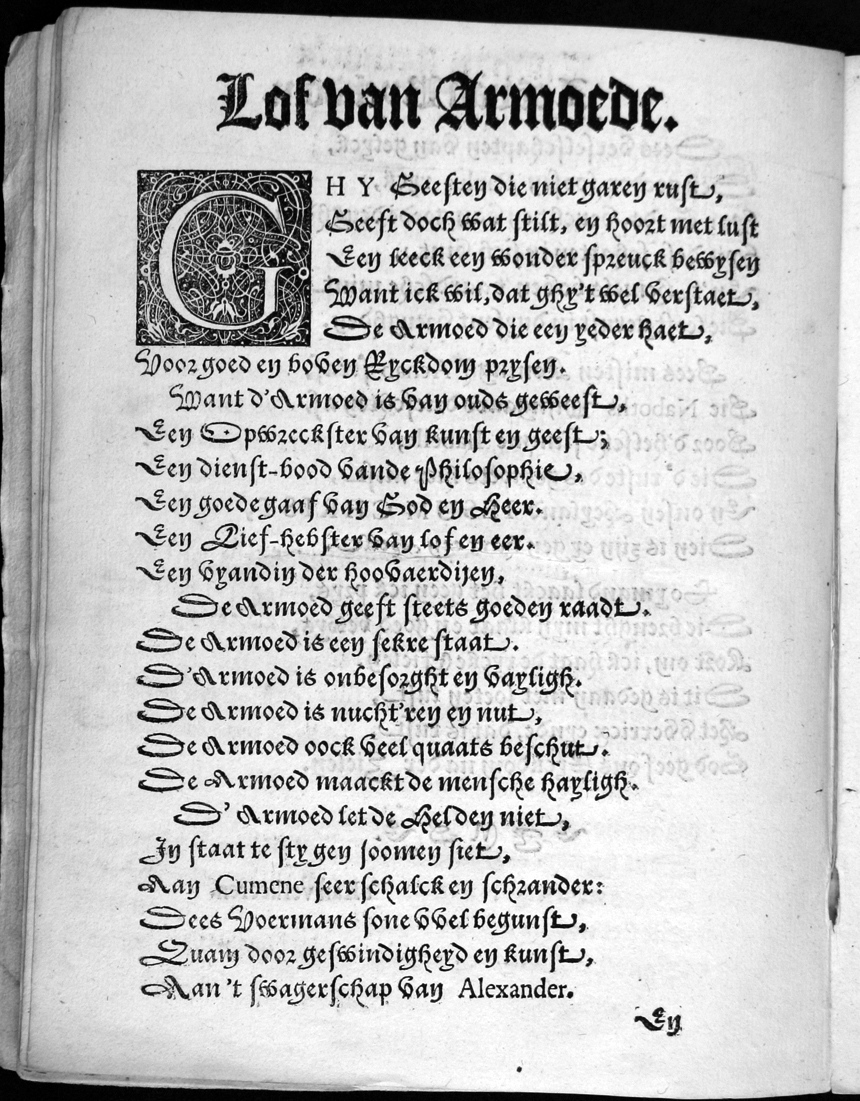 Lof van Armoede.
GHY Geesten die niet garen rust,
Geeft doch wat stilt, en hoort met lust
Een leeck een wonder spreuck bewysen
Want ick wil, dat ghy't wel verstaet,
De Armoed die een yeder haet,
Voor goed en boven Ryckdom prysen.
Want d'Armoed is van ouds geweest,
Een Opwreckster van kunst en geest;
Een dienst-bood vande Philosophie,
Een goede gaaf van God en Heer.
Een Lief-hebster van lof en eer.
Een vyandin der hoovaerdijen,
De Armoed geeft steets goeden raadt.
De Armoed is een sekre staat.
D'Armoed is onbesorght en vayligh.
De Armoed is nucht'ren en nut,
De Armoed oock veel quaats beschut.
De Armoed maackt de mensche hayligh.
D' Armoed let de Helden niet,
In staat te stygen soomen siet,
Aan Cumene seer schalck en schrander:
Dees Voermans sone vvel begunst,
Quam door geswindigheyd en kunst,
Aan 't swagerschap van Alexander.
En